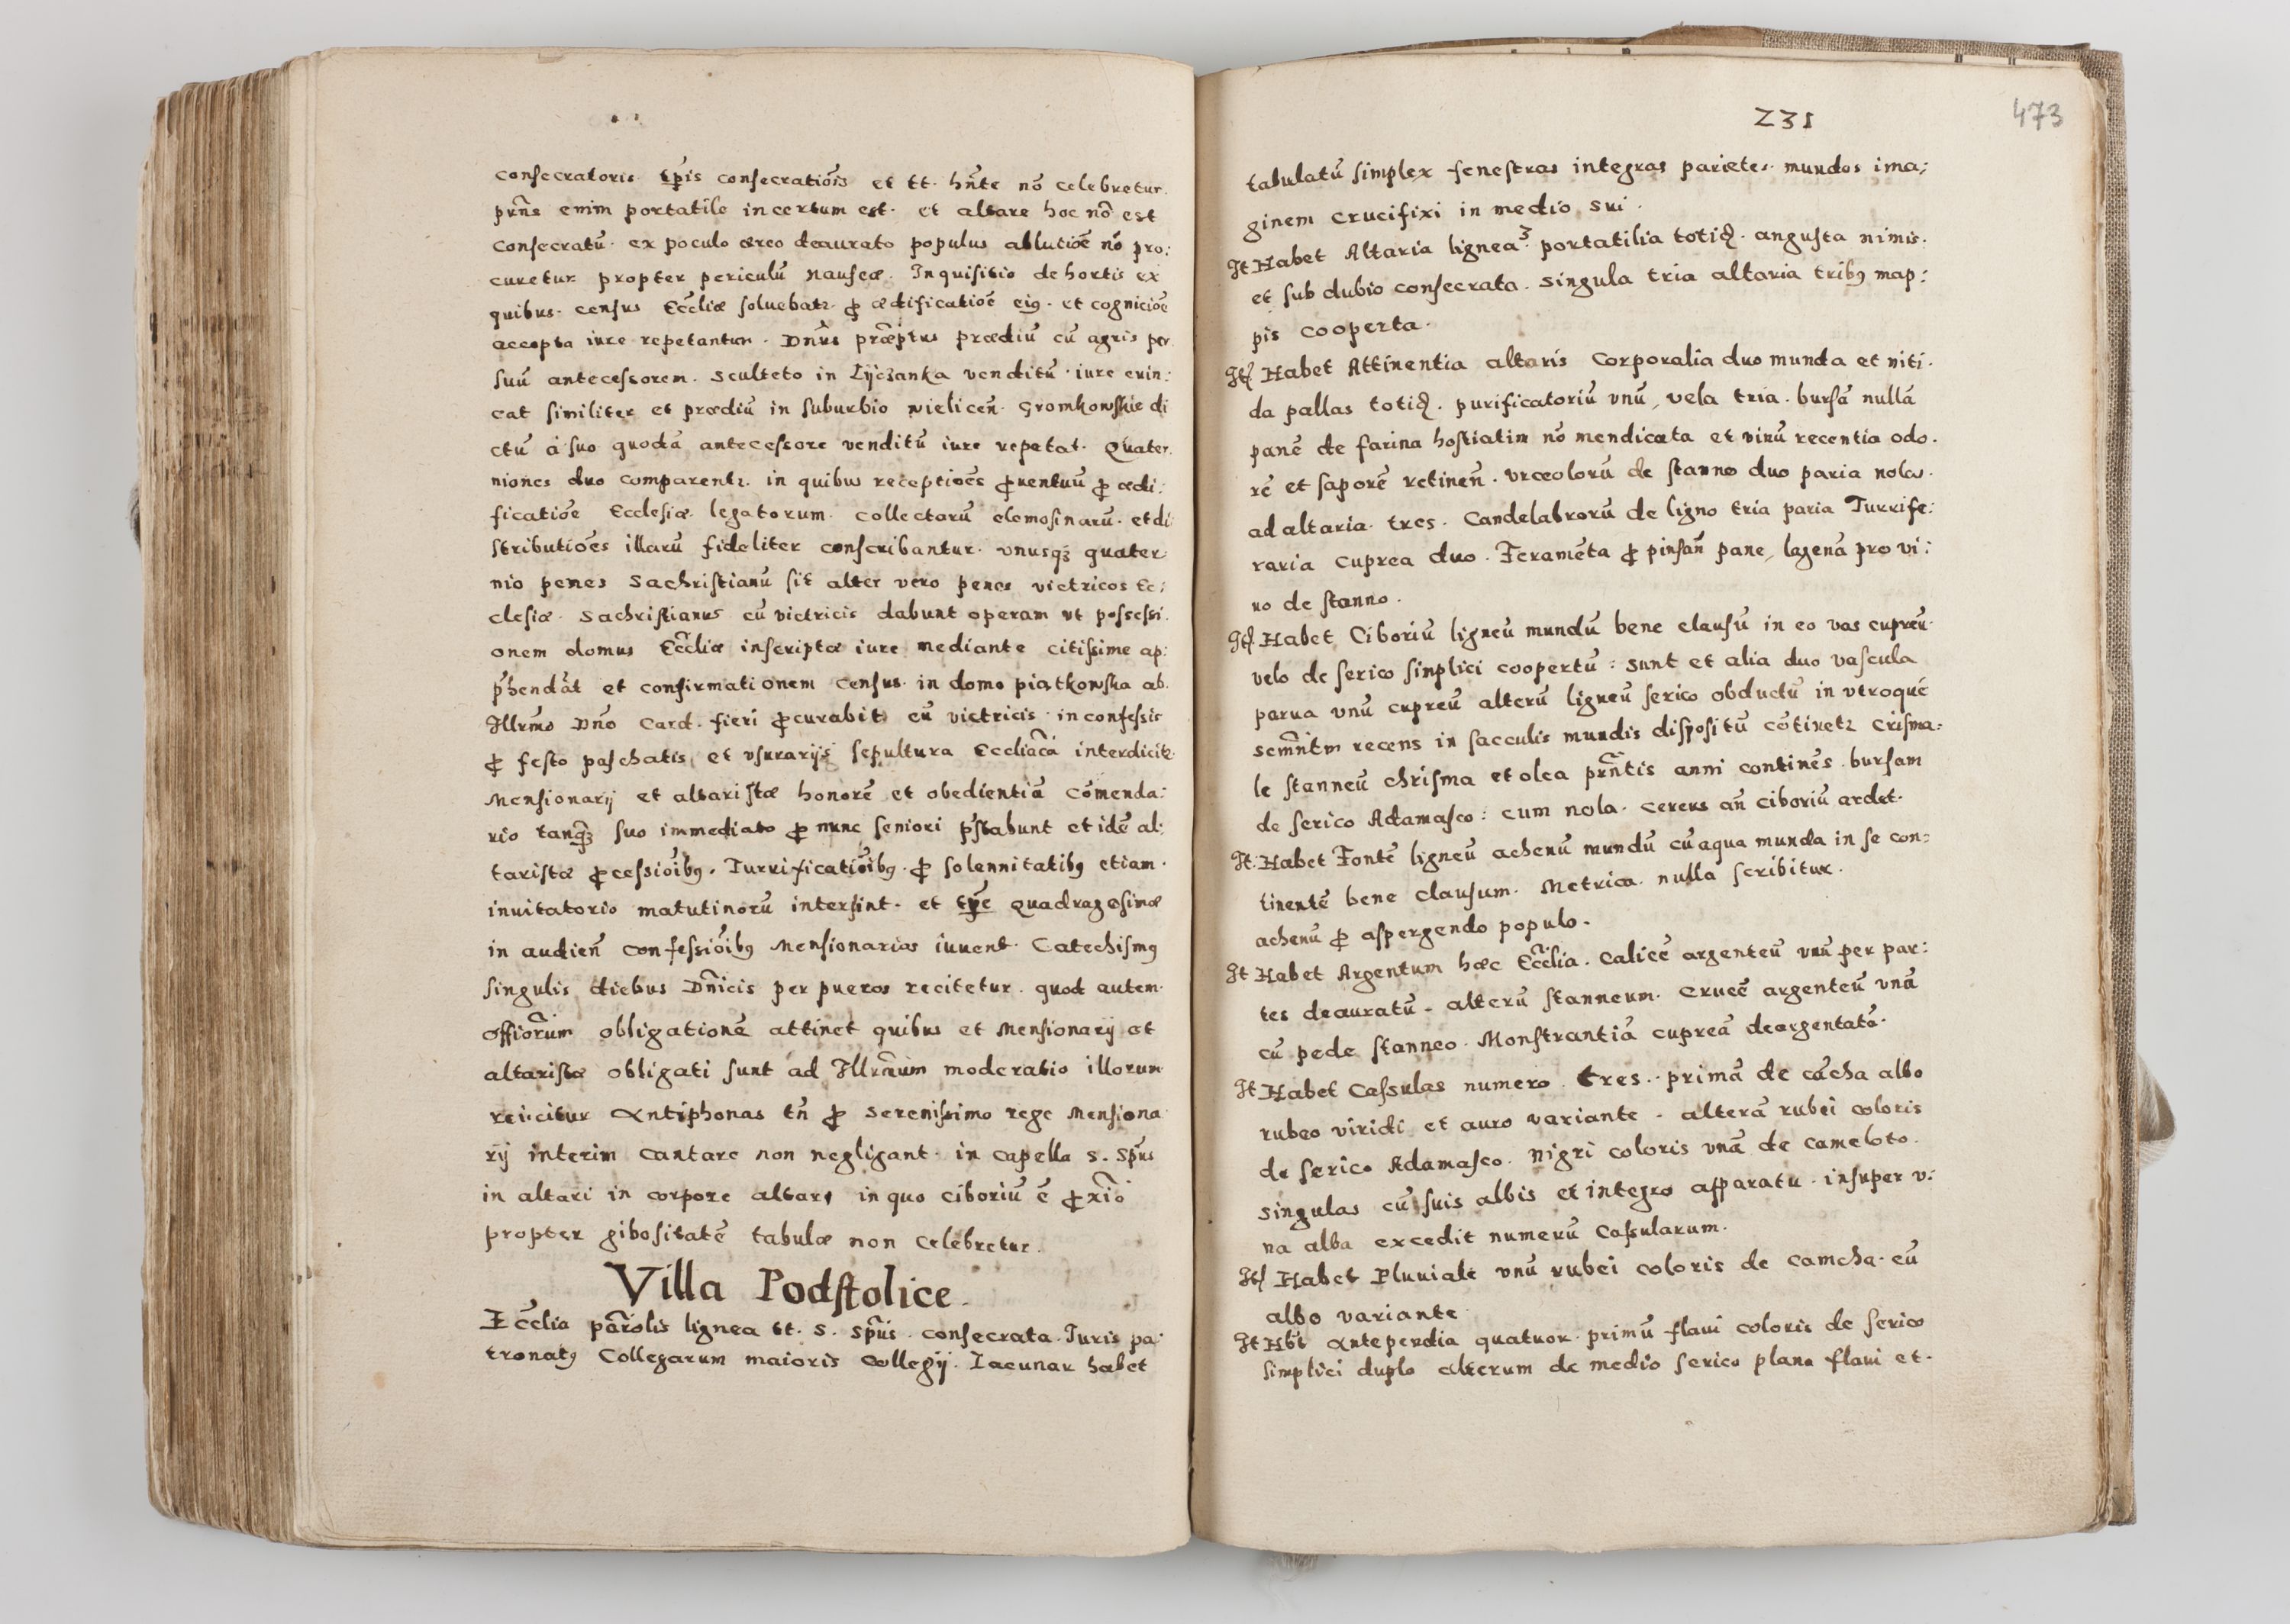 consecratoris tp̄is consecratiōis et tt. hn̄te nō celebretur
prn̄s enim portatile incertum est. et altare hoc nō est
consecratū. ex poculo æreo deaurato populus ablutiōe nō pro:
curetur propter periculū nauseæ. Inquisitio de hortis ex
quibus. census Ecc̄liæ soluebatr. ꝓ ædificatiōe eiꝯ. et cogniciōe
accepta iure repetantur. Dn̄us præp̄tus prædiū cū agris per
suū antecessorem. sculteto in Lyczanka venditū. iure evin:
cat similiter et prædiū in suburbio wielicen̄. Gromkowskie di
ctū á suo quodā antecessore venditū iure repetat. Quater
niones duo comparentr. in quibus receptiōes ꝓuentuū ꝓ ædi:
ficatiōe Ecclesiæ legatorum. collectarū elemosinarū. et di
stributiōes illarū fideliter conscribantur. vnusqꝫ quater
nio penes Sachristianū sit alter vero penes victricos Ec:
clesiæ. Sachristianus cū victricis dabunt operam vt possessi.
onem domus Ecc̄liæ inscriptæ iure mediante citissime ap:
p̄hendāt et confirmationem census. in domo piątkowska ab.
Illrm̄o Dn̄o Card. fieri ꝓcurabit cū victricis. in confessis
ꝓ festo paschatis et vsurarijs sepultura Eccliac̄a interdicitr
Mensionarij et altaristæ honorē et obedientiā cōmenda:
rio tanqꝫ suo immediato ꝓ nunc seniori p̄stabunt et idē al:
taristæ ꝓcessiōibꝯ. Turrificatiōibꝯ. ꝓ solennitatibꝯ etiam.
inuitatorio matutinorū intersint. et tp̄e Quadragesimæ
in audien̄ confessiōibꝯ Mensionarios iuuent. Catechismꝯ
singulis diebus Dn̄icis per pueros recitetur. quod autem
offior̄um obligationē attinet quibus et Mensionarij et
altaristæ obligati sunt ad Illrm̄um moderatio illorum
reiicitur Antiphonas tn̄ ꝓ serenissimo rege Mensiona
rij interim cantare non negligant. in capella S. Spūs
in altari in corpore altaris in quo ciboriū ē ꝓxīo
propter gibositatē tabulæ non celebretur.
Villa Podstolice.
Ecc̄lia par̄olis lignea tt. S. Spūs. consecrata. Iuris pa:
tronatꝯ Collegarum maioris collegij. Lacunar habet
231
473
tabulatū simplex fenestras integras parietes mundos ima;
ginem crucifixi in medio sui.
It Habet Altaria lignea 3. portatilia totiꝺ. angusta nimis.
et sub dubio consecrata. singula tria altaria tribꝯ map:
pis cooperta.
Itē Habet Attinentia altaris Corporalia duo munda et niti.
da pallas totiꝺ. purificatoriū vnū, vela tria. bursā nullā
panē de farina hostiatim nō mendicata et vinū recentia odo.
rē et saporē retinen̄. vrceolorū de stanno duo paria nolas.
ad altaria tres. Candelabrorū de ligno tria paria Turrife:
raria cuprea duo. Feramēta ꝓ pinsan̄ pane, lagenā pro vi:
no de stanno.
Itē Habet Ciboriū ligneū mundū bene clausū in eo vas cupreū
velo de serico simplici coopertū: sunt et alia duo vascula
parua vnū cupreū alterū ligneū serico obductū in vtroque
semn̄tm recens in sacculis mundis dispositū cōtinetr Crisma:
le stanneū chrisma et olea prn̄tis anni continēs. bursam
de serico Adamasco: cum nola. cereus an̄ ciboriū ardet.
It: Habet Fontē ligneū achenū mundū cū aqua munda in se con:
tinentē bene clausum. Metrica nulla scribitur.
achenū ꝓ aspergendo populo.
It Habet Argentum hæc Ecc̄lia. calicē argenteū vnū per par:
tes deauratū. alterū stanneum. crucē argenteū vnā
cū pede stanneo. Monstrantiā cupreā deargentatā.
It Habet Cassulas numero tres. primā de cācha albo
rubeo viridi et auro variante. alterā rubei coloris
de serico Adamasco. nigri coloris vnā de cameloto.
singulas cū suis albis et integro apparatu. insuper v:
na alba excedit numerū Cassularum.
Itē Habet Pluuiale vnū rubei coloris de camcha. cū
albo variante.
It Hb̄t Antependia quatuor. primū flaui coloris de serico
simplici duplo alterum de medio serico plano flaui et.